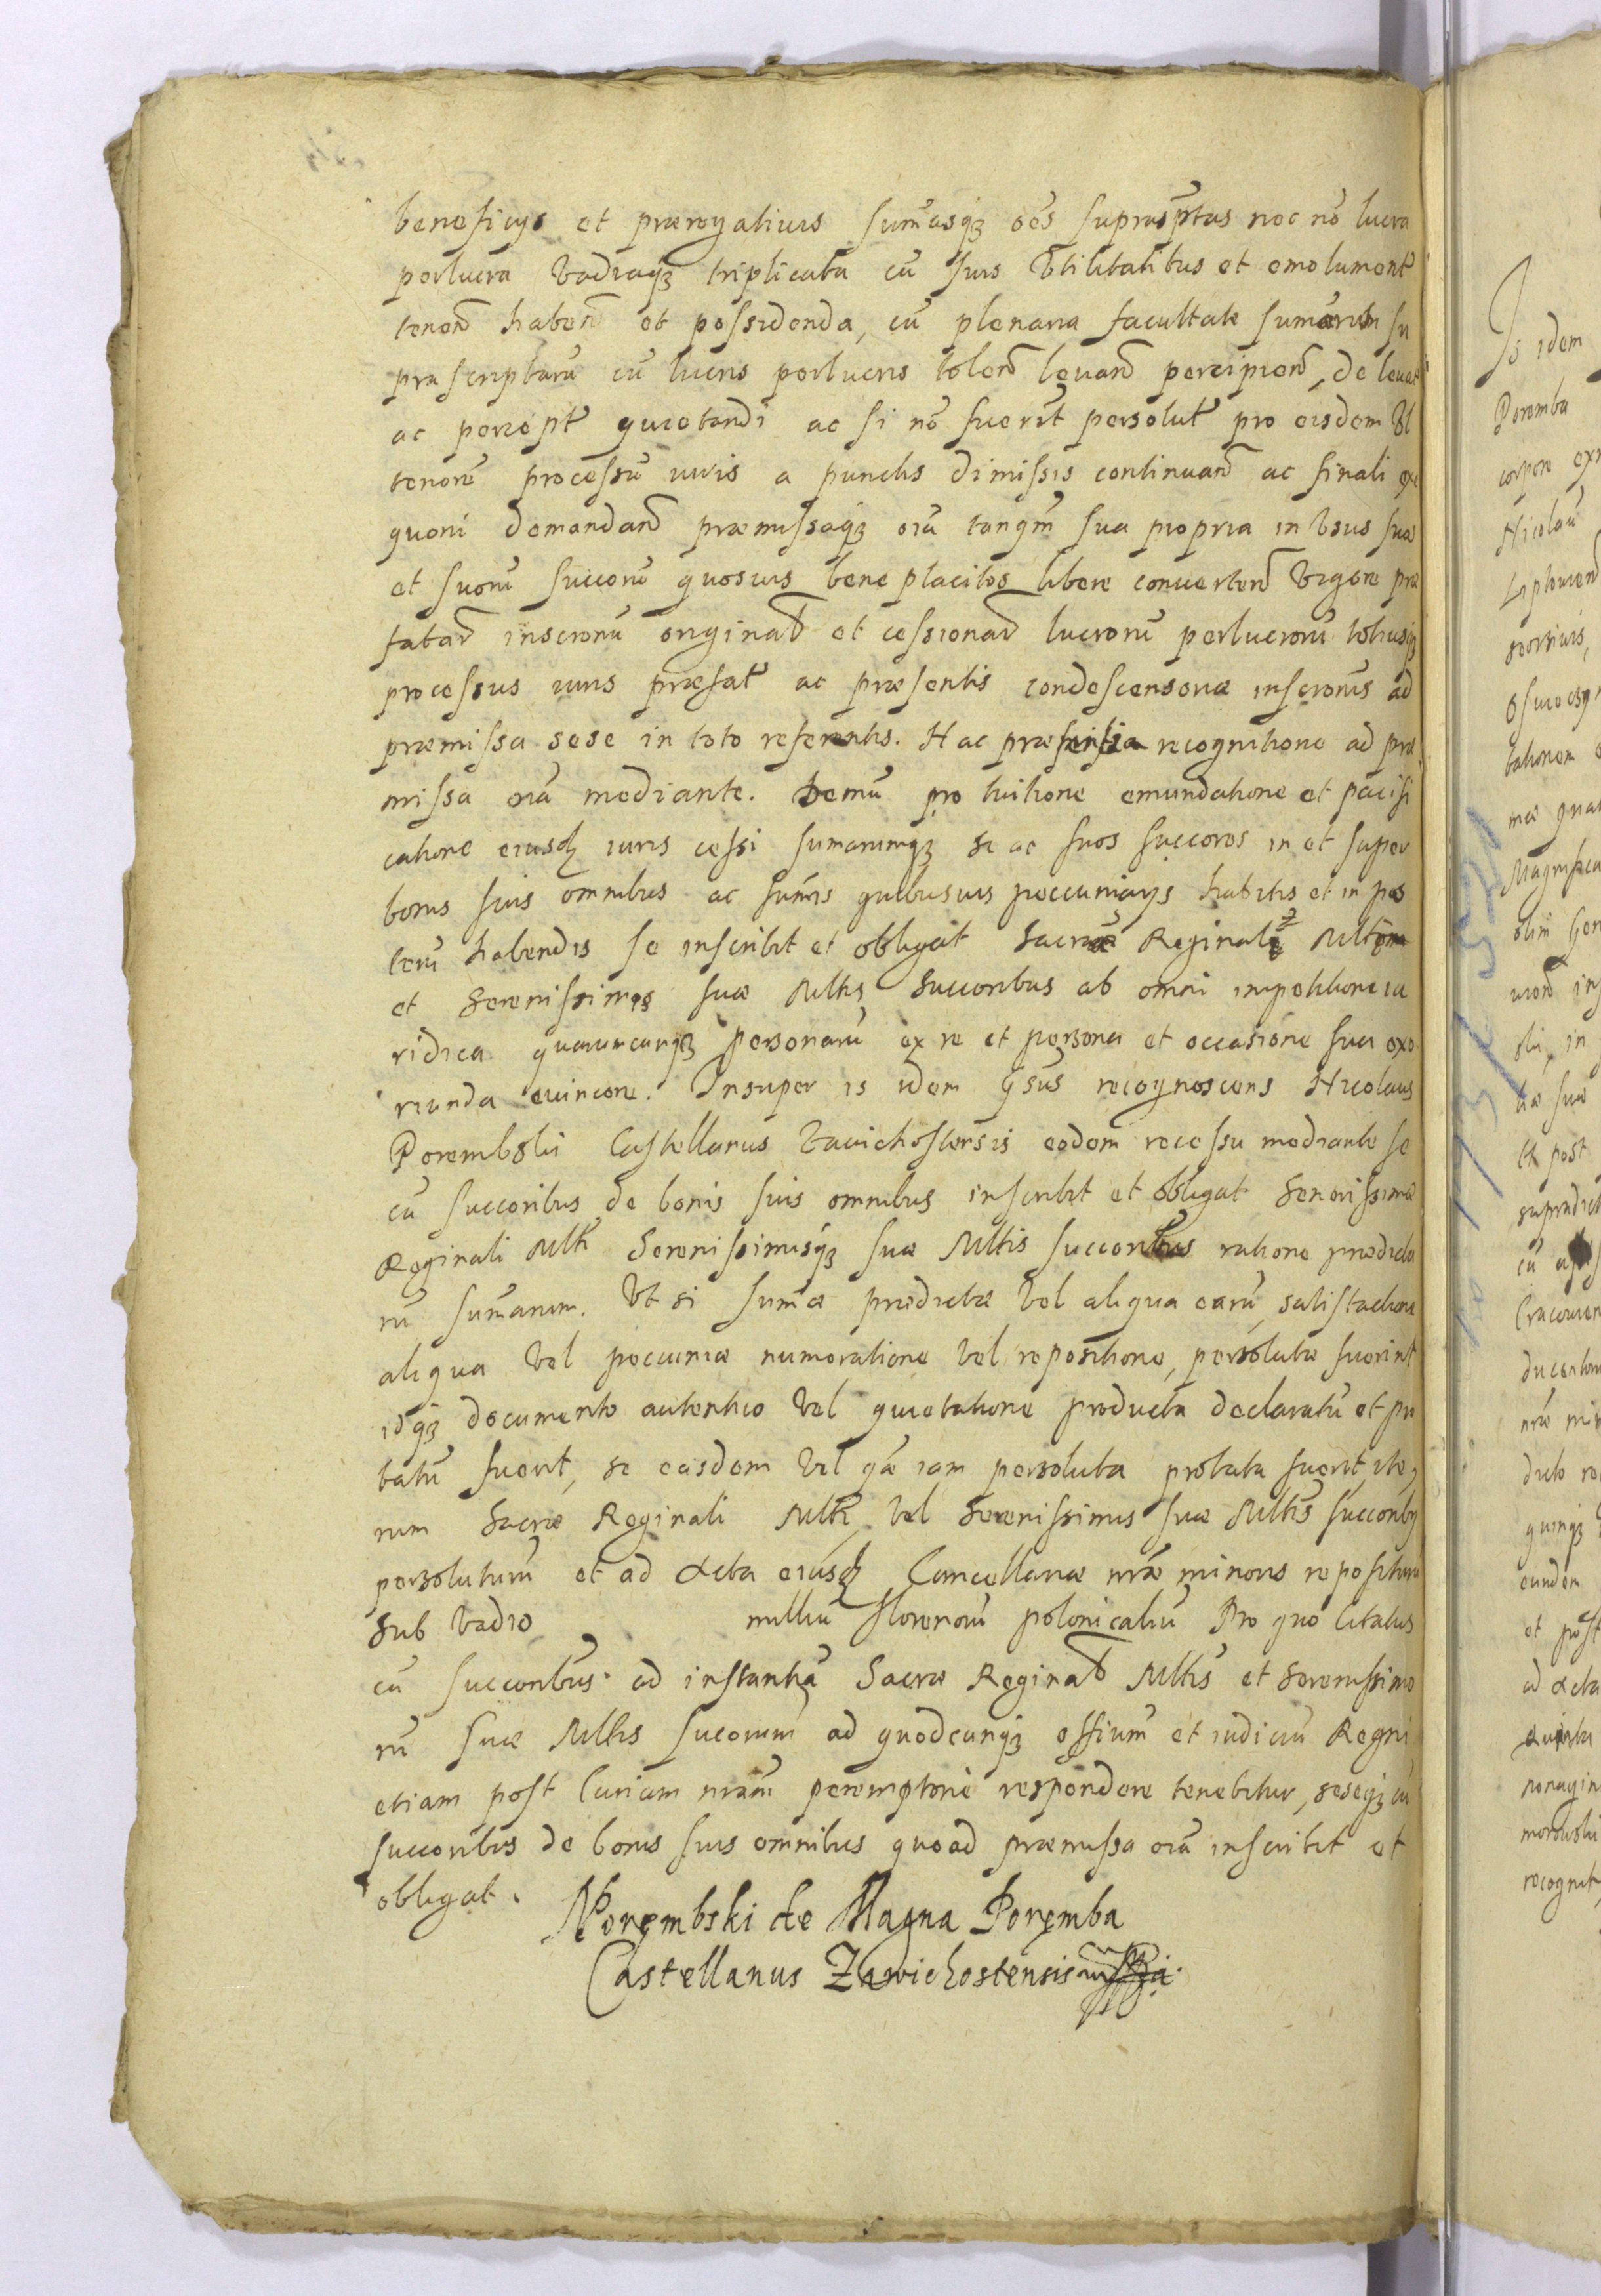 beneficijs et prærogatiuis sum̄asq3 oēs suprasp̄tas nec nō lucra
perlucra Vadiaq3 triplicata cū suis Vtilitatibus et emolument
tenen̄ haben̄ et possidenda, cū plenaria facultate sum̄arum su
prascriptarū cū lucris perlucris tolen̄ leuan̄ percipien̄, de leuat
ac percept quietandi ac si nō fuerīt persolut pro eisdem Vt
tenore processū iuris a punctis dimissis continuan̄ ac finali exe
quoni demandan̄ præmissaq3 oīa tanqm̄ sua propria in Vsus suæ
et suorū succorū quosuis bene placitos libere conuerten̄ Vigore præ
fatar̄ inscronū originał et cessionar̄ lucrorū perlucrorū totiusq3
processus iuris præfat ac præsentis condescensoriæ inscronis ad
præmissa sese in toto referentis. Hac præsentia recognitione ad præ
missa oīa mediante. Demū pro tuitione emundatione et pacifi
catione eiusd iuris cessi sumarumq3 se ac suos succores in et super
bonis suis omnibus ac sum̄is quibusuis peccuniarijs habitis et in pos
terū habendis se inscribit et obligat Sacræ Reginali Mtti
et Serenissimis suæ Mttis Succoribus ab omni impetitione iu
ridica quarumcunq3 personarū ex re et persona et occasione sua exo
riunda euincere. Insuper is idem G̃sus recognoscens Nicolaus
Porembski Castellanus Zauichostensis eodem recessu mediante se
cū succoribus de bonis suis omnibus inscribit et obligat Serenissimæ
Reginali Mtti Serenissimisq3 suæ Mttis succoribus ratione prædicta
rū sum̄arum. Vt si sum̄æ prædictæ Vel aliqua earū, satisfactione
aliqua Vel peccuniæ numeratione Vel repositione, persolutæ fuerint
idq3 documento autentico Vel quietatione producta declaratū et pro
batū fuerit, se easdem Vel quæ iam persoluta probata fuerit, ite,
rum Sacræ Reginali Mtti, Vel Serenissimis suæ Mttis succorib9
persoluturū et ad Acta eiusd Cancellariæ nr̄æ minoris repositurū
sub Vadio milliū florenorū polonicaliū Pro quo Citatus
cū succoribus ad instantiā Sacræ Reginał Mttis et Serenissimo
rū suæ Mttis sucorum ad quodcunq3 offium̄ et iudiciū Regni
etiam post Curiam nr̄am peremptorie respondere tenebitur, seseq3 cū
succoribus de bonis suis omnibus quoad præmissa oīa inscribit et
obligat.
NPorębski de Magna Poręmba
Castellanus Zawichostensis
Is idem
Poremba
corpore
Nicolaū
seorsiuis,
tationem
Magnifica
olim
et post
supradict
cū
Cracouien
dicto
quinq3
eundem
et post
ad Acta
recognit